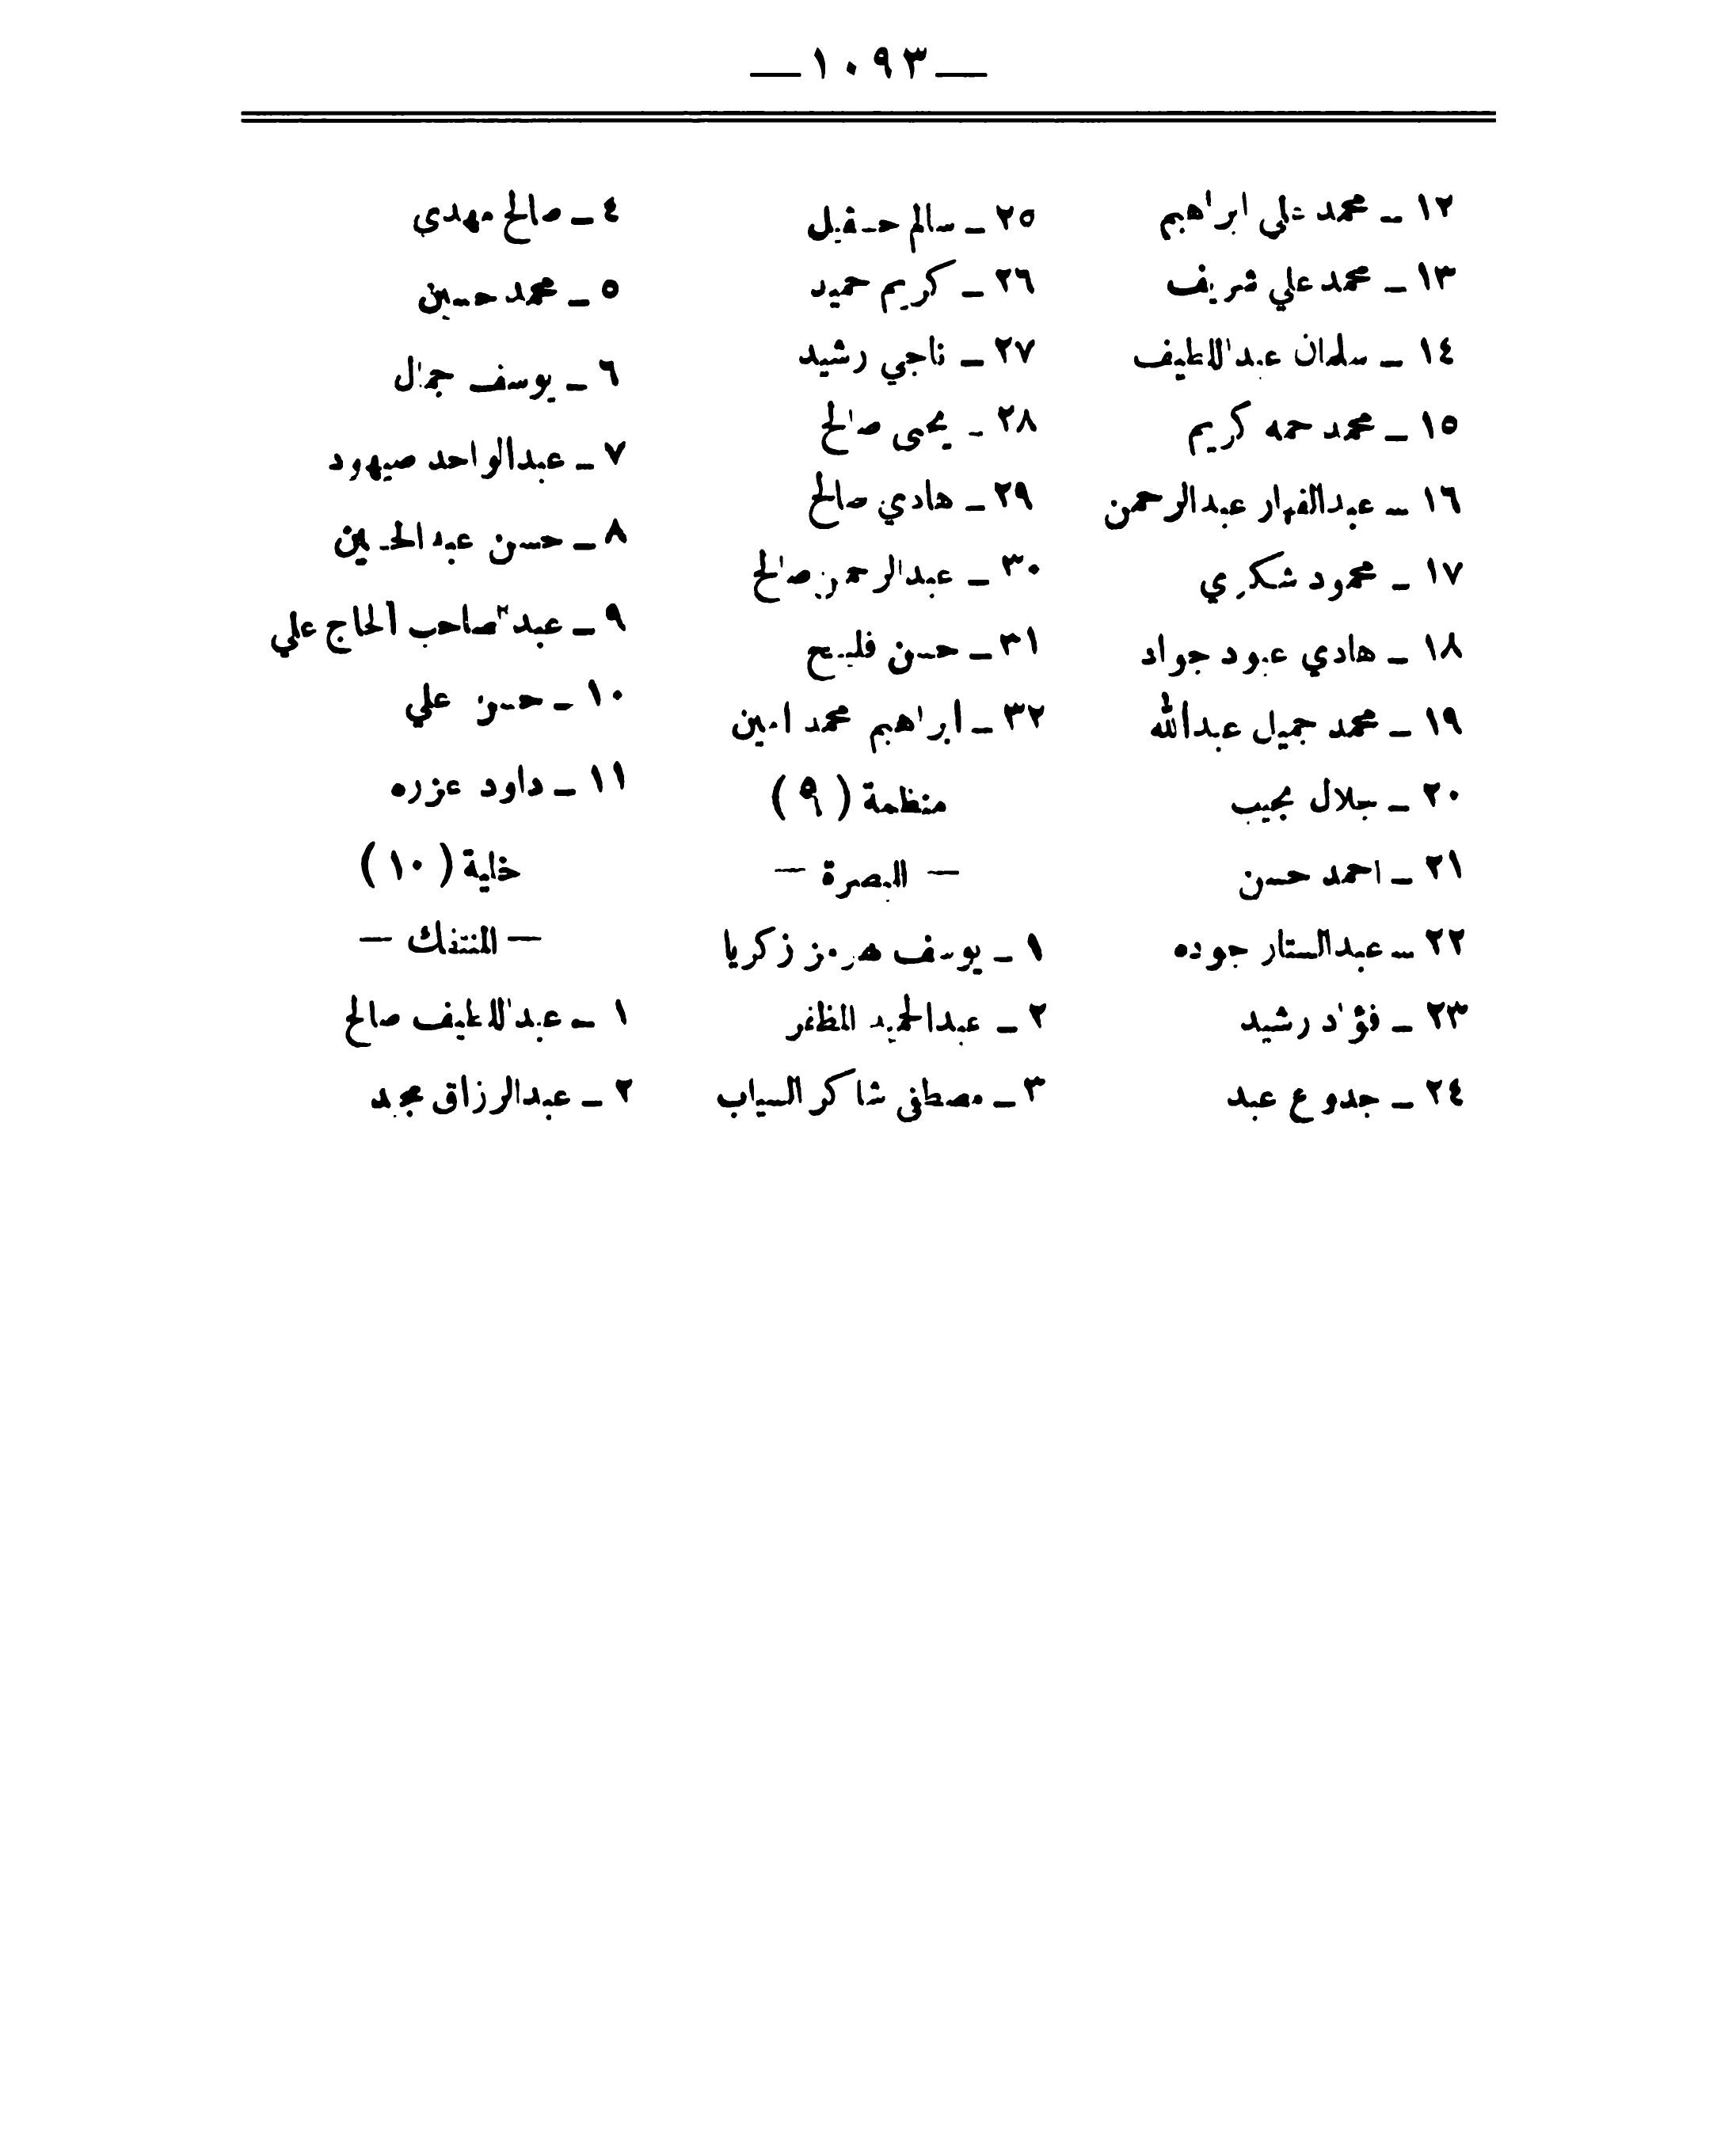 — ١٠٩٣ —
١٢ ــ محمد علي ابراهيم
١٣ ــ محمد علي شريف
١٤ ــ سلمان عبداللطيف
١٥ ــ محمد حمه كريم
١٦ ــ عبدالقهار عبدالرحمن
١٧ ــ محمود شكري
١٨ ــ هادي عبود جواد
١٩ ــ محمد جميل عبدالله
٢٠ ــ جلال مجيب
٢١ ــ احمد حسن
٢٢ ــ عبدالستار جوده
٢٣ ــ فؤاد رشيد
٢٤ ــ جدوع عبد
٢٥ ــ سالم
٢٦ ــ كريم حميد
٢٧ ــ ناجي رشيد
٢٨ ــ يحيى صالح
٢٩ ــ هادي صالح
٣٠ ــ عبدالرحمن صالح
٣١ ــ حسن فليح
٣٢ ــ ابراهيم محمد امين
منظمة ( ٩ )
— البصرة —
١ ــ يوسف هرمز زكريا
٢ ــ عبدالحميد المظفر
٣ ــ مصطفى شاكر السياب
٤ ــ صالح مهدي
٥ ــ محمد حسين
٦ ــ يوسف جمال
٧ ــ عبدالواحد صيهود
٨ ــ حسن عبدالحسين
٩ ــ عبدالصاحب الحاج علي
١٠ ــ حسن علي
١١ ــ داود عزره
خلية ( ١٠ )
— المنتفك —
١ ــ عبداللطيف صالح
٢ ــ عبدالرزاق مجيد